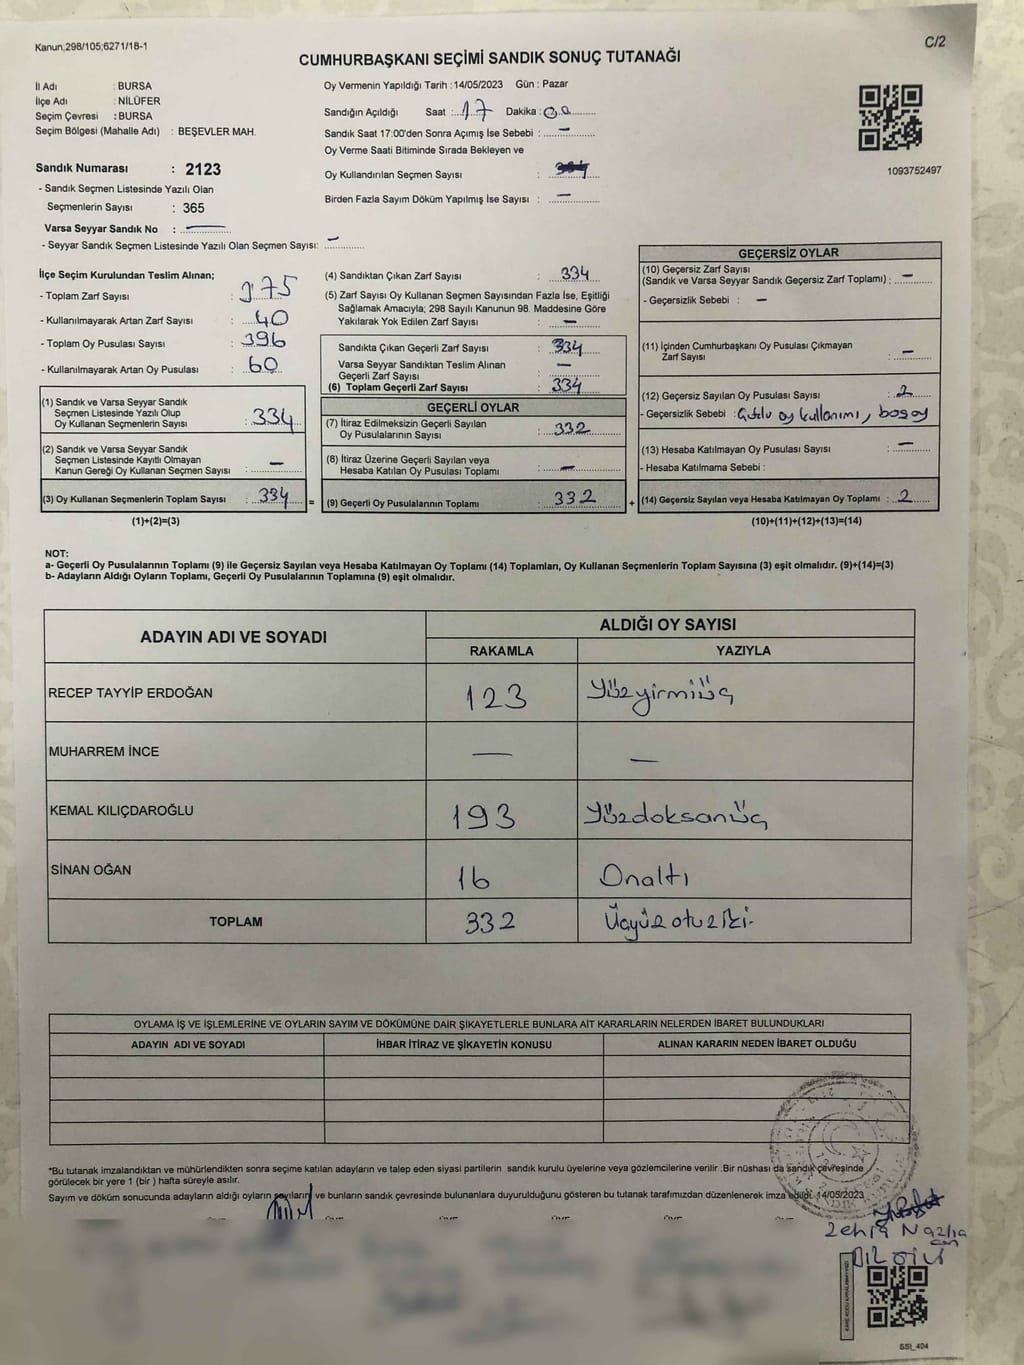 Kanun;298/105;6271/18-1
C/2
CUMHURBAŞKANI SEÇİMİ SANDIK SONUÇ TUTANAĞI
İl Adı : BURSA
İlçe Adı : NİLÜFER
Seçim Çevresi : BURSA
Seçim Bölgesi (Mahalle Adı) : BEŞEVLER MAH.
Sandık Numarası : 2123
- Sandık Seçmen Listesinde Yazılı Olan
Seçmenlerin Sayısı : 365
Varsa Seyyar Sandık No : —
- Seyyar Sandık Seçmen Listesinde Yazılı Olan Seçmen Sayısı: —
Oy Vermenin Yapıldığı Tarih : 14/05/2023 Gün : Pazar
Sandığın Açıldığı Saat : 17 Dakika : 00
Sandık Saat 17:00'den Sonra Açımış İse Sebebi : —
Oy Verme Saati Bitiminde Sırada Bekleyen ve
Oy Kullandırılan Seçmen Sayısı :
Birden Fazla Sayım Döküm Yapılmış İse Sayısı : —
1093752497
İlçe Seçim Kurulundan Teslim Alınan;
- Toplam Zarf Sayısı : 375
- Kullanılmayarak Artan Zarf Sayısı : 40
- Toplam Oy Pusulası Sayısı : 396
- Kullanılmayarak Artan Oy Pusulası : 60
(1) Sandık ve Varsa Seyyar Sandık
Seçmen Listesinde Yazılı Olup
Oy Kullanan Seçmenlerin Sayısı : 334
(2) Sandık ve Varsa Seyyar Sandık
Seçmen Listesinde Kayıtlı Olmayan
Kanun Gereği Oy Kullanan Seçmen Sayısı : —
(3) Oy Kullanan Seçmenlerin Toplam Sayısı : 334
(1)+(2)=(3)
(4) Sandıktan Çıkan Zarf Sayısı : 334
(5) Zarf Sayısı Oy Kullanan Seçmen Sayısından Fazla İse, Eşitliği
Sağlamak Amacıyla; 298 Sayılı Kanunun 98. Maddesine Göre
Yakılarak Yok Edilen Zarf Sayısı : —
Sandıkta Çıkan Geçerli Zarf Sayısı : 334
Varsa Seyyar Sandıktan Teslim Alınan
Geçerli Zarf Sayısı : —
(6) Toplam Geçerli Zarf Sayısı : 334
GEÇERLİ OYLAR
(7) İtiraz Edilmeksizin Geçerli Sayılan
Oy Pusulalarının Sayısı : 332
(8) İtiraz Üzerine Geçerli Sayılan veya
Hesaba Katılan Oy Pusulası Toplamı : —
= (9) Geçerli Oy Pusulalarının Toplamı : 332
GEÇERSİZ OYLAR
(10) Geçersiz Zarf Sayısı
(Sandık ve Varsa Seyyar Sandık Geçersiz Zarf Toplamı) : —
- Geçersizlik Sebebi : —
(11) İçinden Cumhurbaşkanı Oy Pusulası Çıkmayan
Zarf Sayısı : —
(12) Geçersiz Sayılan Oy Pusulası Sayısı : 2
- Geçersizlik Sebebi : oy kullanımı, boş oy
(13) Hesaba Katılmayan Oy Pusulası Sayısı : —
- Hesaba Katılmama Sebebi :
+ (14) Geçersiz Sayılan veya Hesaba Katılmayan Oy Toplamı : 2
(10)+(11)+(12)+(13)=(14)
NOT:
a- Geçerli Oy Pusulalarının Toplamı (9) ile Geçersiz Sayılan veya Hesaba Katılmayan Oy Toplamı (14) Toplamları, Oy Kullanan Seçmenlerin Toplam Sayısına (3) eşit olmalıdır. (9)+(14)=(3)
b- Adayların Aldığı Oyların Toplamı, Geçerli Oy Pusulalarının Toplamına (9) eşit olmalıdır.
ADAYIN ADI VE SOYADI
ALDIĞI OY SAYISI
RAKAMLA YAZIYLA
RECEP TAYYİP ERDOĞAN 123 Yüzyirmiüç
MUHARREM İNCE — —
KEMAL KILIÇDAROĞLU 193 Yüzdoksanüç
SİNAN OĞAN 16 Onaltı
TOPLAM 332 Üçyüz otuz iki
OYLAMA İŞ VE İŞLEMLERİNE VE OYLARIN SAYIM VE DÖKÜMÜNE DAİR ŞİKAYETLERLE BUNLARA AİT KARARLARIN NELERDEN İBARET BULUNDUKLARI
ADAYIN ADI VE SOYADI İHBAR İTİRAZ VE ŞİKAYETİN KONUSU ALINAN KARARIN NEDEN İBARET OLDUĞU
*Bu tutanak imzalandıktan ve mühürlendikten sonra seçime katılan adayların ve talep eden siyasi partilerin sandık kurulu üyelerine veya gözlemcilerine verilir .Bir nüshası da sandık çevresinde
görülecek bir yere 1 (bir ) hafta süreyle asılır.
Sayım ve döküm sonucunda adayların aldığı oyların sayıların ve bunların sandık çevresinde bulunanlara duyurulduğunu gösteren bu tutanak tarafımızdan düzenlenerek imza edildi. 14/05/2023
Zehra Nazlı
SSI_404